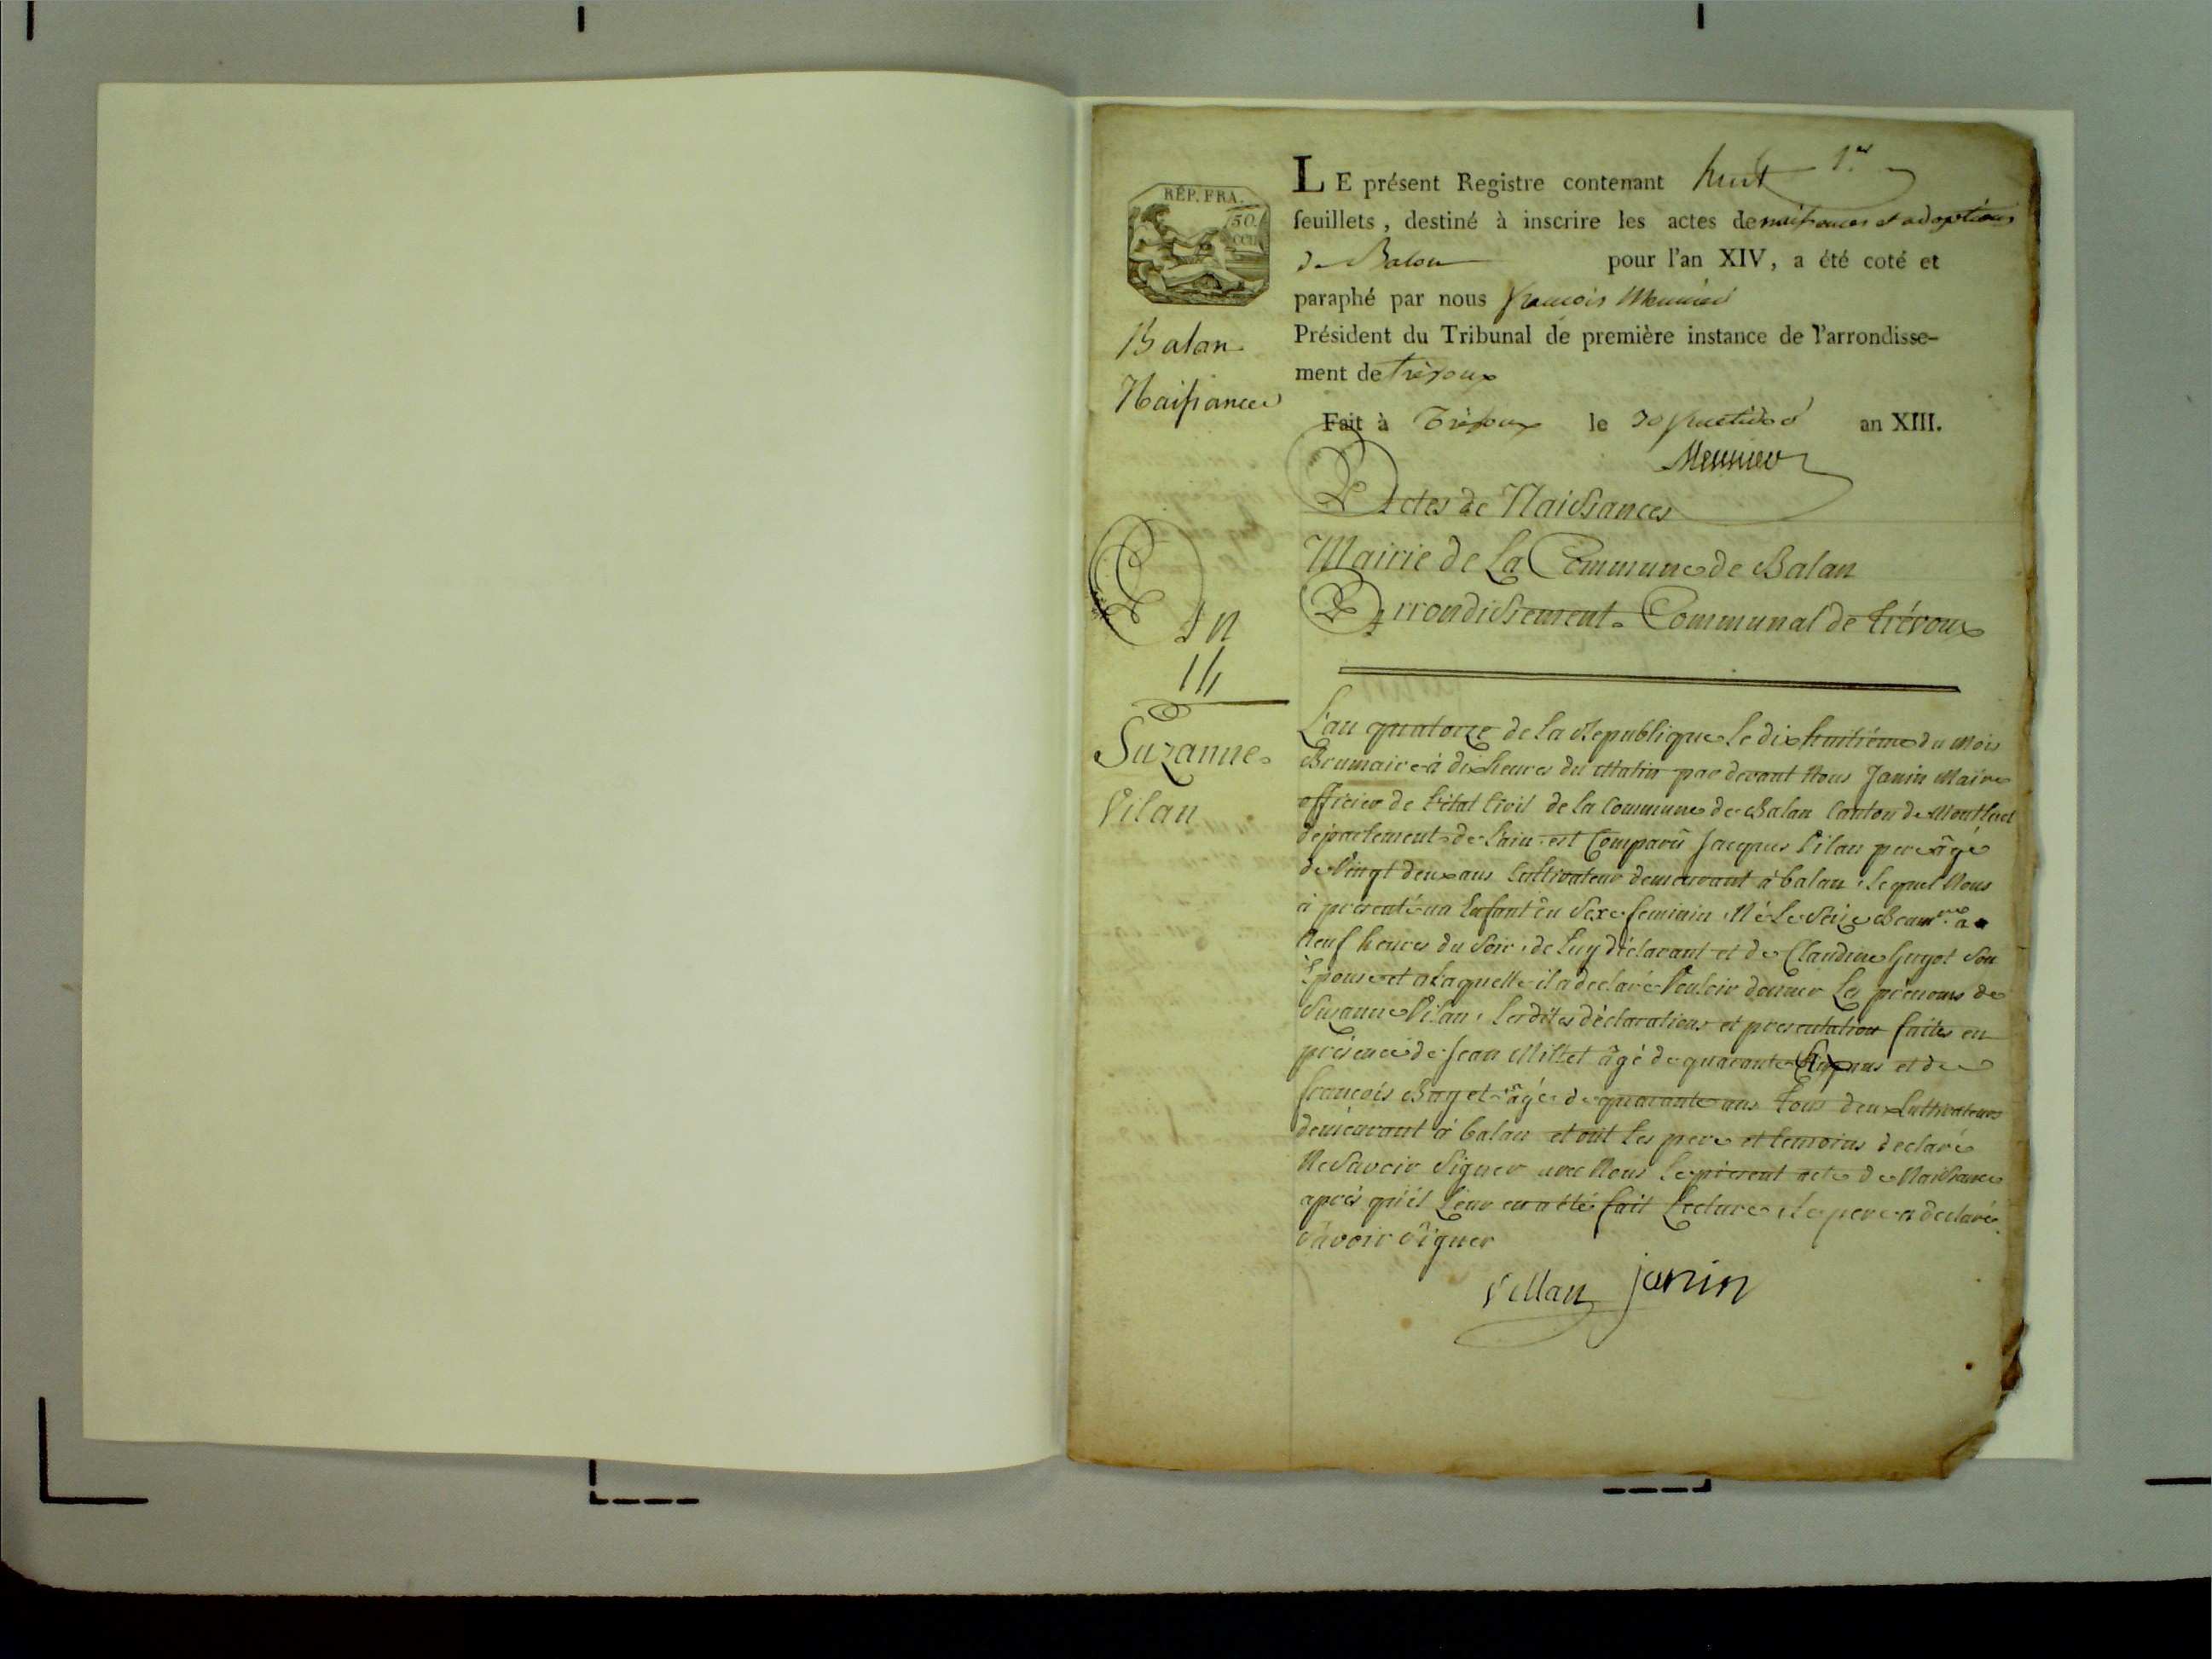 RÉP. FRA.
50.
Balan
Naissances
LE présent Registre contenant huit 1er
feuillets, destiné à inscrire les actes de naissances et adoptions
de Balan pour l'an XIV, a été coté et
paraphé par nous françois Meunier
Président du Tribunal de première instance de l'arrondisse-
ment de Trévoux
Fait à Trévoux le 30 fructidor an XIII.
Meunier
Actes de Naissances
Mairie de La Commune de Balan
Arrondissement Communal de trévoux
An
14
Suzanne
Vilan
L'an quatorze de la Republique le dix huitiéme du mois
Brumaire à dix heures du Matin par devant Nous Janin Maire
officier de l'état Civil de la Commune de Balan Canton de Montluel
département de l'ain est Comparû Jacques Vilan pere âgé
de Vingt deux ans Cultivateur demeurant à balan, lequel Nous
à presenté un Enfant du Sexe feminin, Né Le Seize Brumre à
Neuf heures du Soir, de Luy déclarant et de Claudine Guyot Son
Epouse et a Laquelle il a declaré Vouloir donner Les prénoms de
Suzanne Vilan, Lesdites déclarations et presentation faites en
présence de Jean Millet âgé de quarante ans et de
françois Bayet âgé de quarante ans tous deux Cultivateurs
demeurant à balan et ont Les pere et temoins declaré
Ne Savoir Signer avec Nous Le présent acte de Naissance
après qu'il Leur en a été fait Lecture, Le pere a declaré
Savoir Signer
Villan janin